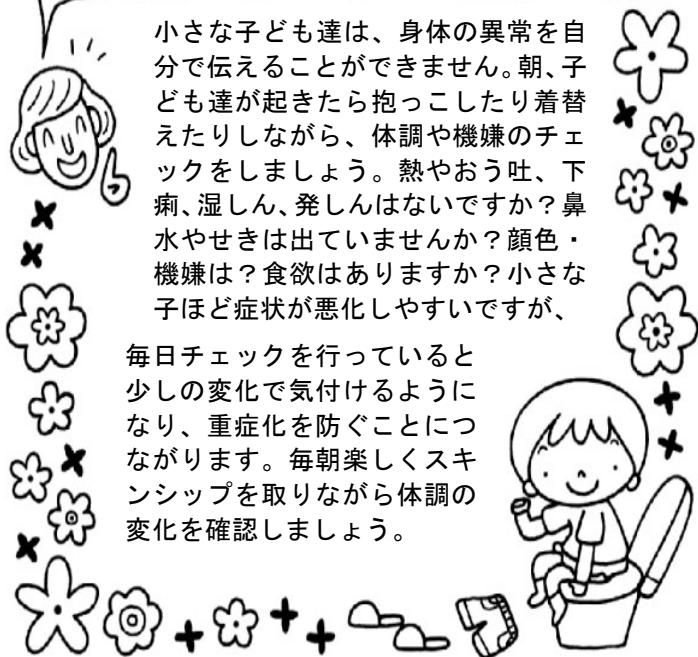 小さな子ども達は、身体の異常を自
分で伝えることができません。朝、子
ども達が起きたら抱っこしたり着替
えたりしながら、体調や機嫌のチェ
ックをしましょう。熱やおう吐、下
痢、湿しん、発しんはないですか？鼻
水やせきは出ていませんか？顔色・
機嫌は？食欲はありますか？小さな
子ほど症状が悪化しやすいですが、
毎日チェックを行っていると
少しの変化で気付けるように
なり、重症化を防ぐことにつ
ながります。毎朝楽しくスキ
ンシップを取りながら体調の
変化を確認しましょう。